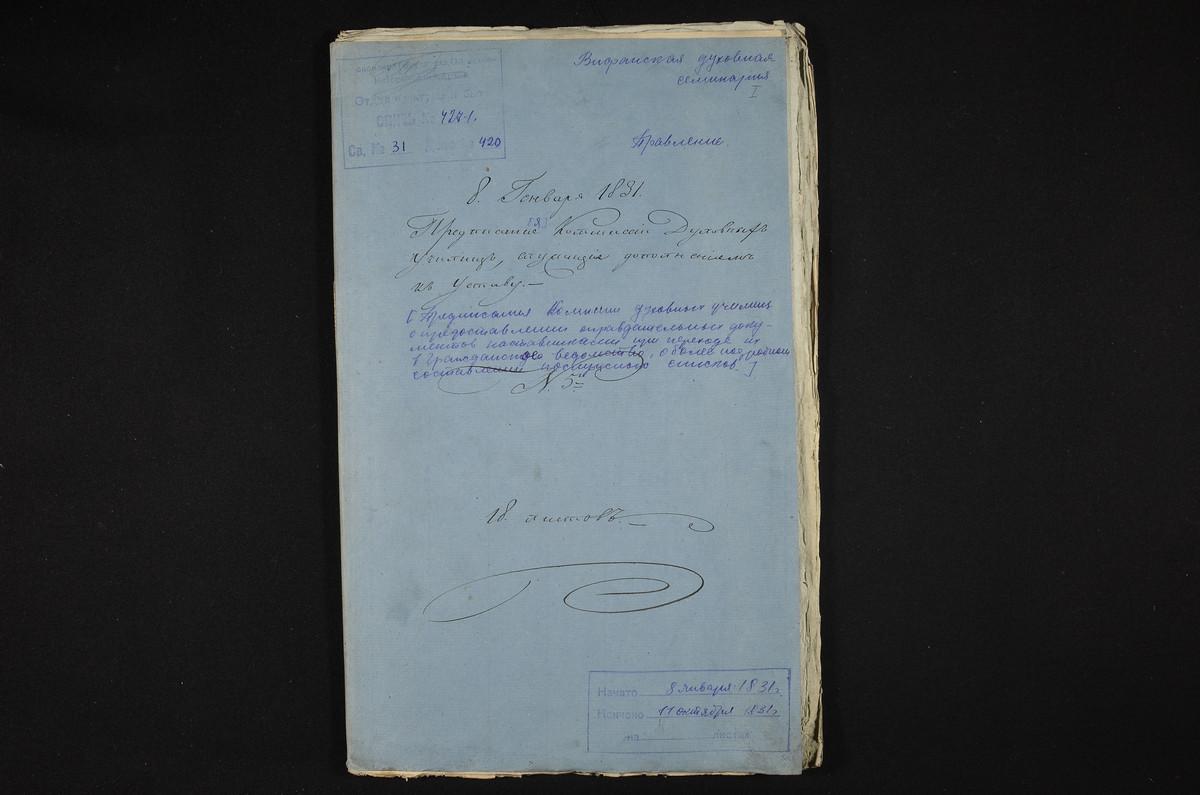 Отдел
ОПИСЬ № 427-1.
Св. № 31 420
Вифанская духовная
семинария
I
Правление
8. Генваря 1831.
[8]
Предписание Коммисіи Духовныхъ
Училищъ, служащія дополненіемъ
къ Уставу.—
[Предписания Комисии духовных училищ
о предоставлении оправдательных доку-
ментов наставниками при переходе их
в Гражданское ведомство, о более подробном
составлении послужного списков.]
N. 5й
18. листовъ.—
Начато 8 января 1831г.
Кончено 11 октября 1831г.
на листах